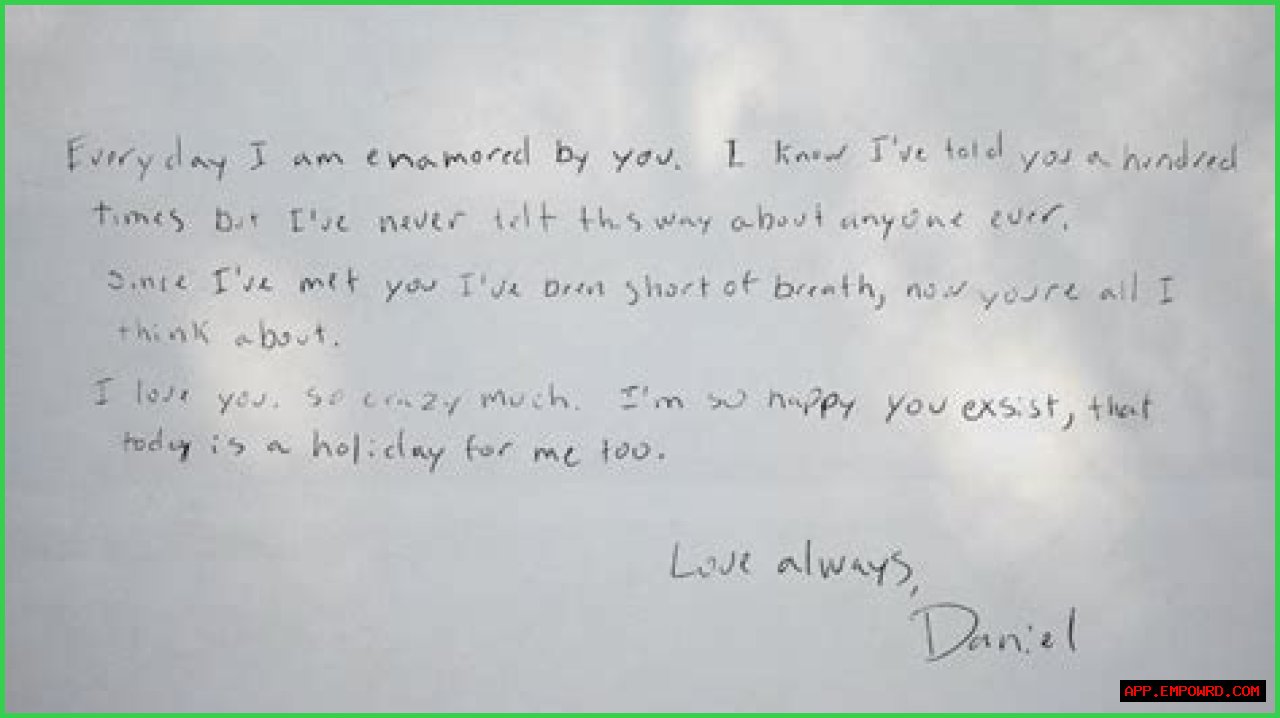 Everyday I am enamored by you. I know I've told you a hundred
times but I've never felt this way about anyone ever.
Since I've met you I've been short of breath, now youre all I
think about.
I love you. so crazy much. I'm so happy you exsist, that
today is a holiday for me too.
Love always,
Daniel
APP.EMPOWRD.COM